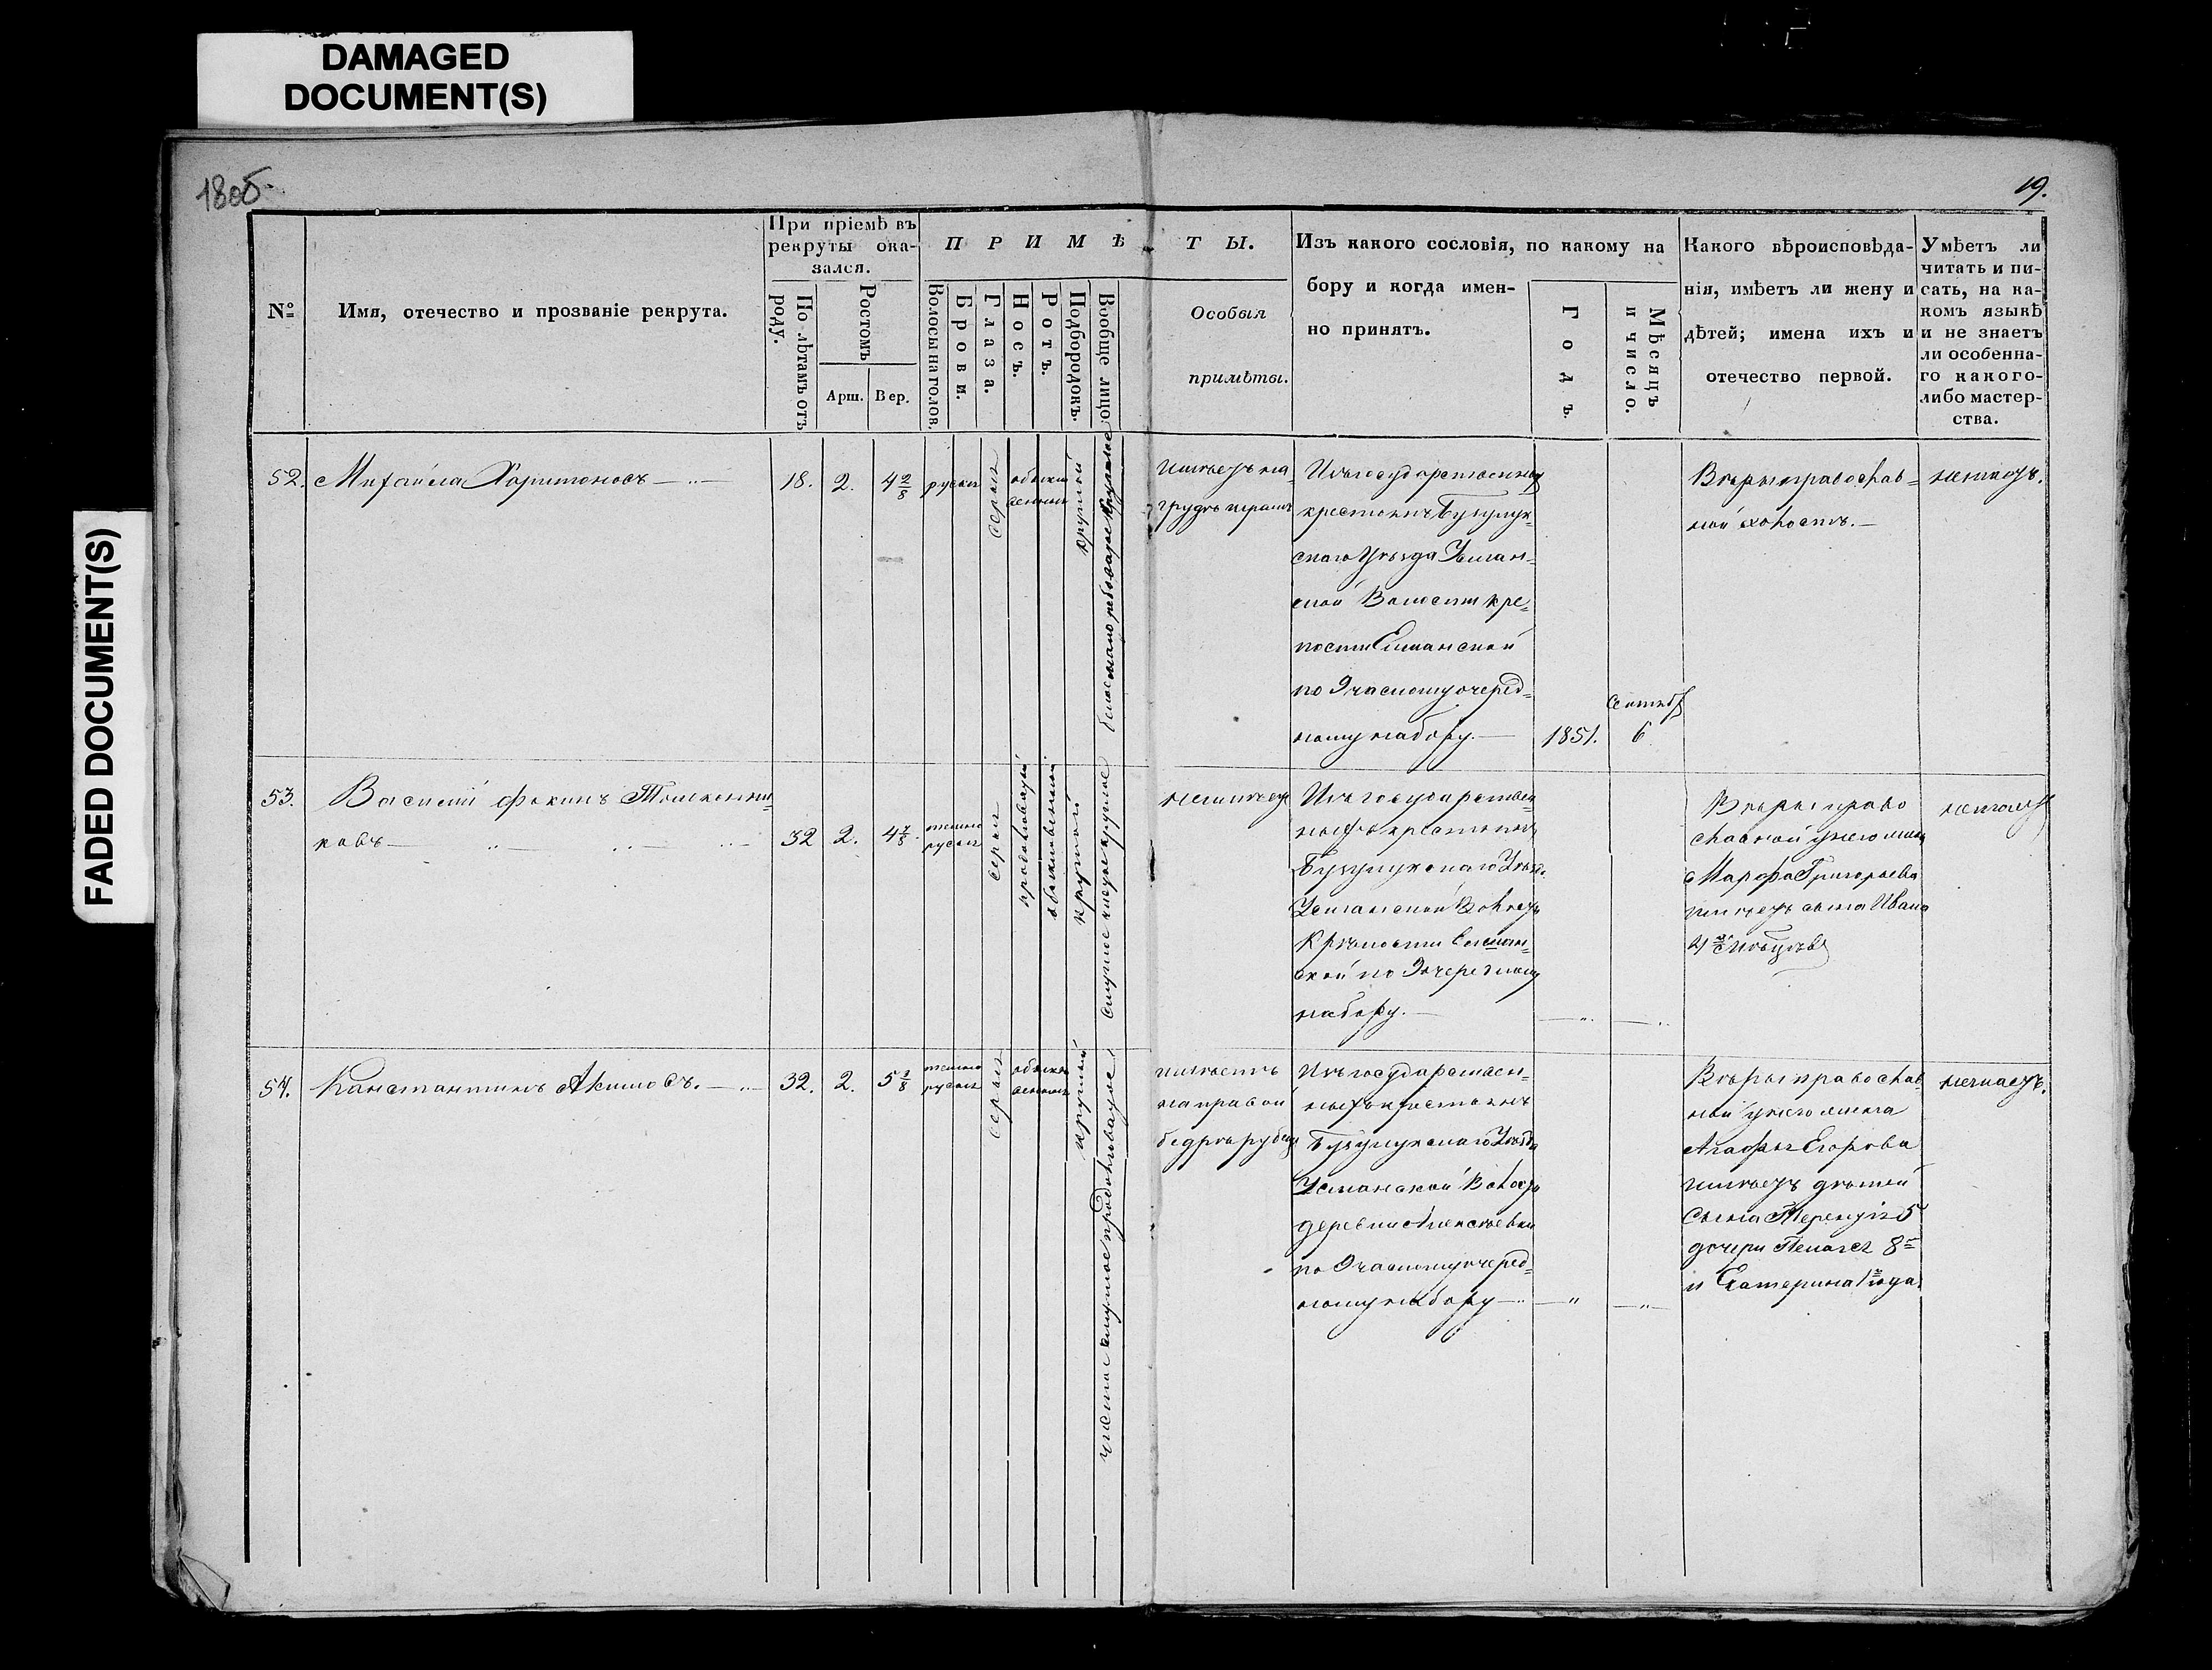 DAMAGED
DOCUMENT(S)
FADED DOCUMENT(S)
18об.
19.
№
Имя, отечество и прозваніе рекрута.
При пріемѣ въ
рекруты ока-
зался.
По лѣтамъ отъ
роду.
Ростомъ
Арш.
Вер.
П Р И М Ѣ
Волосы на головѣ
Брови.
Глаза.
Носъ.
Ротъ.
Подбородокъ.
Вообще лицо.
Т Ы.
Особыя
примѣты.
Изъ какого сословія, по какому на
бору и когда имен-
но принятъ.
Годъ.
Мѣсяцъ
и число.
Какого вѣроисповѣда-
нія, имѣетъ ли жену и
дѣтей; имена ихъ и
отечество первой.
Умѣетъ ли
читать и пи-
сать, на ка-
комъ языкѣ
и не знаетъ
ли особенна-
го какого-
либо мастер-
ства.
52.
Михайла Харитоновъ
18.
2.
4 2/8
русые
серые
обыкно
венные
круглый
круглое
имѣетъ на
груди шрамъ
Изъ государственных
крестьянъ Бузулук-
скаго Уѣзда
Волости кре-
пости Елшанской
по 9 частному очеред-
ному набору.
1851.
Сентябр
6
Вѣры православ-
ной холостъ.
незнаетъ.
53.
Василій Фокинъ
ковъ
32
2.
4 7/8
темно
русые
серые
продолговатый
обыкновенный
круглый
смуглое чистое круглое
неимѣетъ
Изъ государствен
ныхъ крестьянъ
Бузулукскаго Уѣзд.
Волости
Крѣпости Елшан-
ской по 9 очередному
набору.
Вѣры право
славной у него жена
Марфа Григорьева
имѣетъ сына Ивана
незнаетъ
54.
Константинъ Акимовъ.
32.
2.
5 2/8
темно
русые
серые
обыкно
венные
круглый
чистое смуглое продолговатое
имѣетъ
на правой
бедрѣ рубецъ
Изъ государствен-
ныхъ крестьянъ
Бузулукскаго Уѣзда
Волости
деревни Алексѣевки
по 9 частному очеред-
ному набору
Вѣры православ-
ной у него жена
Агафья Егорова
имѣетъ дѣтей
сына Терентія 5
дочери Пелагея 8
и Екатерина 1 года.
незнаетъ.